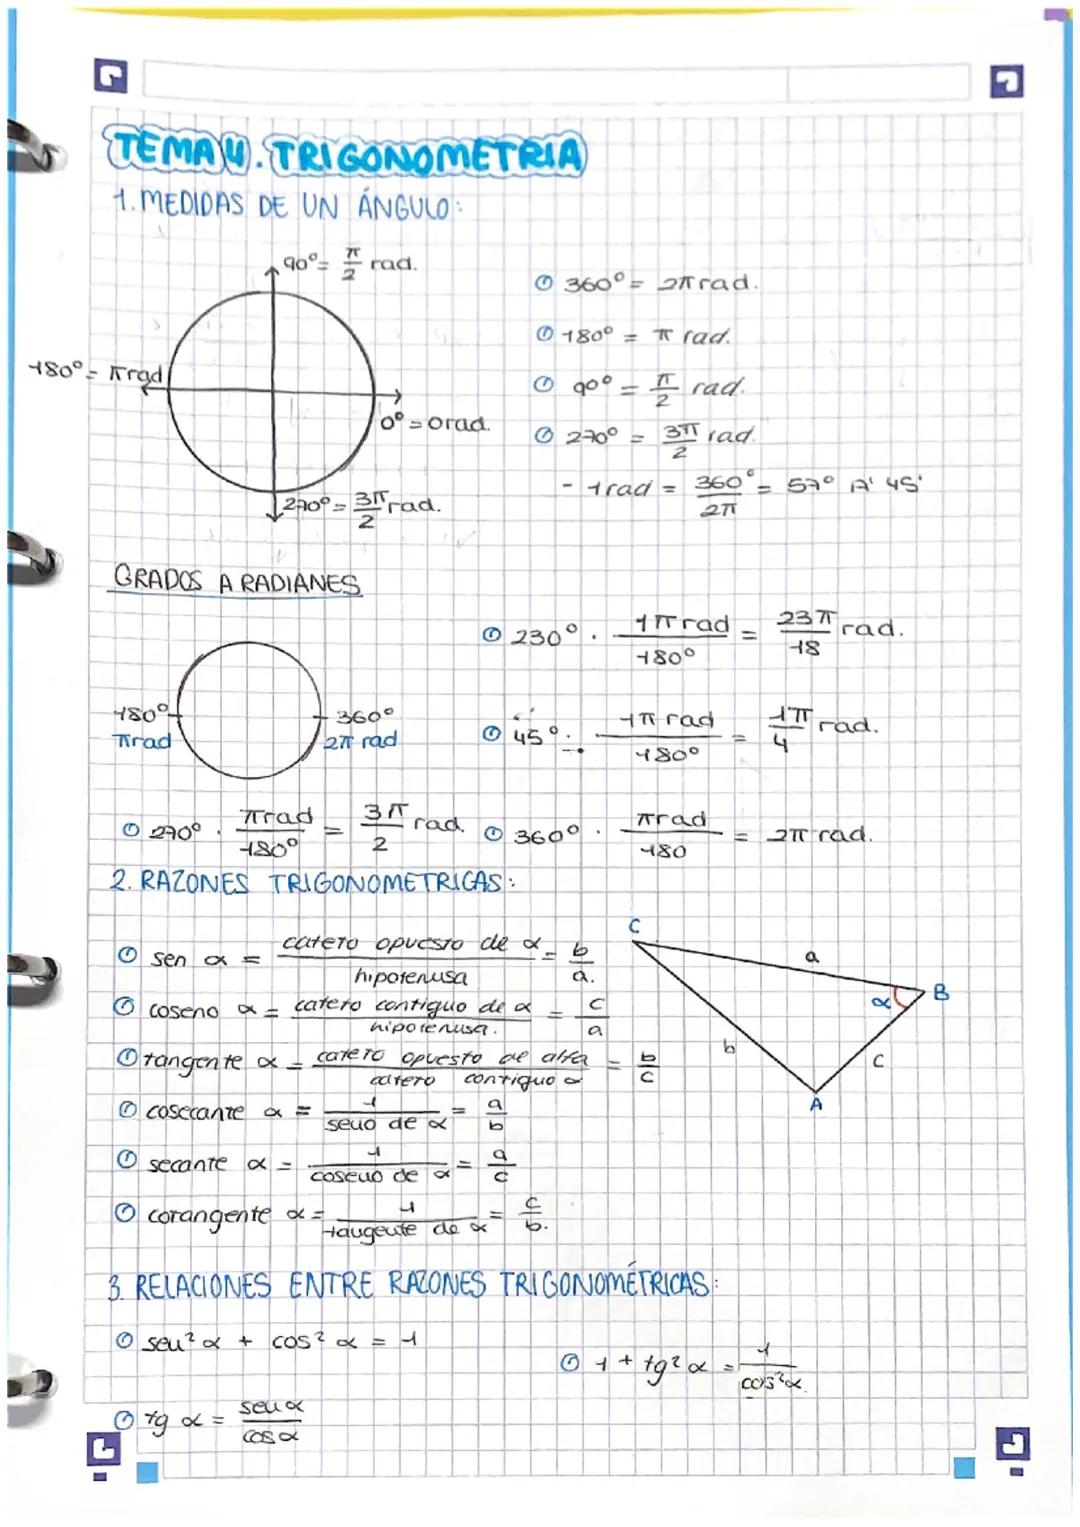 TEMA 4. TRIGONOMETRIA
1. MEDIDAS DE UN ÁNGULO:
90º = π/2 rad.
180º = π rad
0º = 0 rad.
270º = 3π/2 rad.
360º = 2π rad.
180º = π rad.
90º = π/2 rad.
270º = 3π/2 rad.
- 1 rad = 360º/2π = 57º 17' 45'
GRADOS A RADIANES
180º
π rad
360º
2π rad
230º · 1π rad/180º = 23π/18 rad.
45º · 1π rad/180º = 1π/4 rad.
270º · π rad/180º = 3π/2 rad.
360º · π rad/180 = 2π rad.
2. RAZONES TRIGONOMETRICAS:
sen α = cateto opuesto de α/hipotenusa = b/a.
coseno α = cateto contiguo de α/hipotenusa. = c/a
tangente α = cateto opuesto de alfa/cateto contiguo α = b/c
cosecante α = 1/seno de α = a/b
secante α = 1/coseno de α = a/c
cotangente α = 1/tangente de α = c/b.
C
a
B
α
b
c
A
3. RELACIONES ENTRE RAZONES TRIGONOMÉTRICAS:
sen² α + cos² α = 1
1 + tg² α = 1/cos² α.
tg α = sen α/cos α